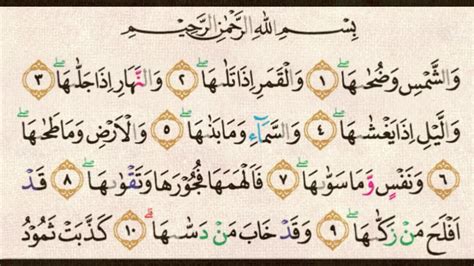 بِسْمِ اللهِ الرَّحْمٰنِ الرَّحِيْمِ
وَالشَّمْسِ وَضُحٰىهَا ۖ ١ وَالْقَمَرِ اِذَا تَلٰىهَا ۖ ٢ وَالنَّهَارِ اِذَا جَلّٰىهَا ۖ ٣
وَالَّيْلِ اِذَا يَغْشٰىهَا ۖ ٤ وَالسَّمَاۤءِ وَمَا بَنٰىهَا ۖ ٥ وَالْاَرْضِ وَمَا طَحٰىهَا ۖ
٦ وَنَفْسٍ وَّمَا سَوّٰىهَا ۖ ٧ فَاَلْهَمَهَا فُجُوْرَهَا وَتَقْوٰىهَا ۖ ٨ قَدْ
اَفْلَحَ مَنْ زَكّٰىهَا ۖ ٩ وَقَدْ خَابَ مَنْ دَسّٰىهَا ۗ ١٠ كَذَّبَتْ ثَمُوْدُ